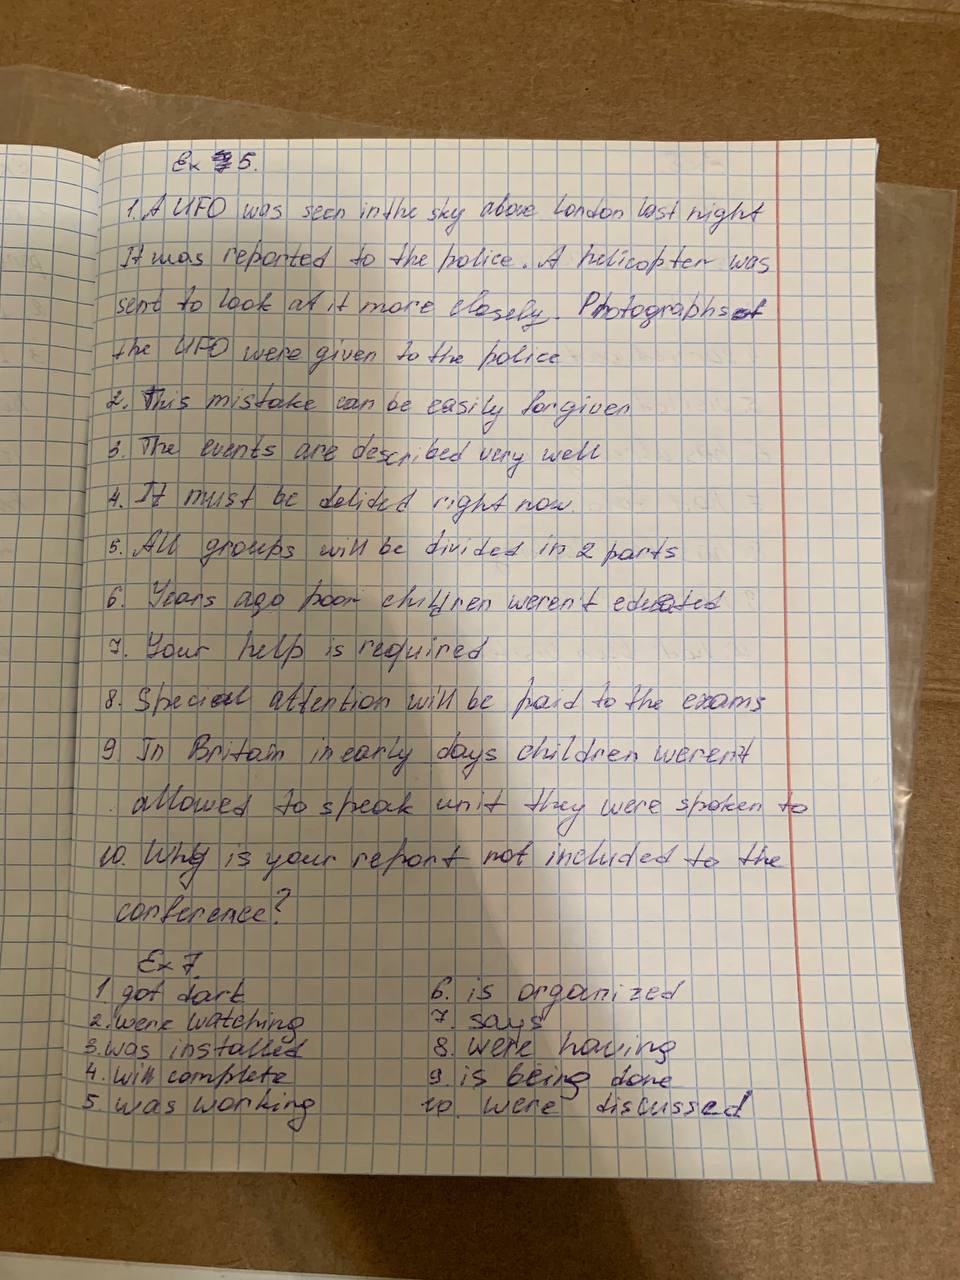 Ex 5.
1. A UFO was seen in the sky above London last night
It was reported to the police. A helicopter was
sent to look at it more closely. Photographs of
the UFO were given to the police
2. This mistake can be easily forgiven
3. The events are described very well
4. It must be delided right now.
5. All groups will be divided in 2 parts
6. Years ago poor children weren't educated
7. Your help is required
8. Special attention will be paid to the exams
9. In Britain in early days children weren't
allowed to speak unit they were spoken to
10. Why is your report not included to the
conference?
Ex 7.
1. got dark
2. were watching
3. was installed
4. will complete
5. was working
6. is organized
7. says
8. were having
9. is being done
10. were discussed